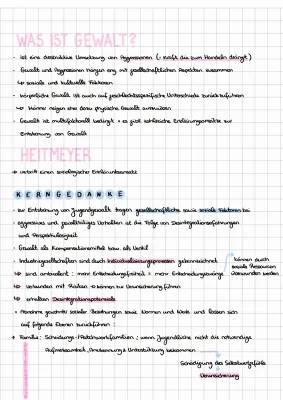 WAS IST GEWALT?
- ist eine destruktive Umsetzung von Aggressionen (→ Kraft die zum Handeln drängt)
- Gewalt und Aggressionen hängen eng mit gesellschaftlichen Aspekten zusammen
↳ soziale und kulturelle Faktoren
- körperliche Gewalt ist auch auf geschlechtsspezifische Unterschiede zurückzuführen
↳ Männer neigen eher dazu physische Gewalt auszuüben
- Gewalt ist multifaktoriell bedingt → es gibt zahlreiche Erklärungsansätze zur
Entstehung von Gewalt
HEITMEYER
→ vertritt einen soziologischen Erklärungsansatz
KERNGEDANKE
- zur Entstehung von Jugendgewalt tragen gesellschaftliche sowie soziale Faktoren bei
- aggressives und gewalttätiges Verhalten ist die Folge von Desintegrationserfahrungen
und Perspektivlosigkeit
- Gewalt als Kompensationsmittel bzw. als Ventil
- Industriegesellschaften sind durch Individualisierungsprozesse gekennzeichnet
↳ sind ambivalent: mehr Entscheidungsfreiheit = mehr Entscheidungszwänge
↳ verbunden mit Risiken → können zur Verunsicherung führen
↳ enthalten Desintegrationspotenziale
können durch
soziale Ressourcen
überwunden werden
- Abnahme gewohnter sozialer Beziehungen sowie Normen und Werte und lassen sich
auf folgende Ebenen zurückführen:
→ Familie: Scheidungs-/Patchworkfamilien; wenn Jugendliche nicht die notwendige
Aufmerksamkeit, Anerkennung & Unterstützung bekommen
Schädigung des Selbstwertgefühls
Verunsicherung